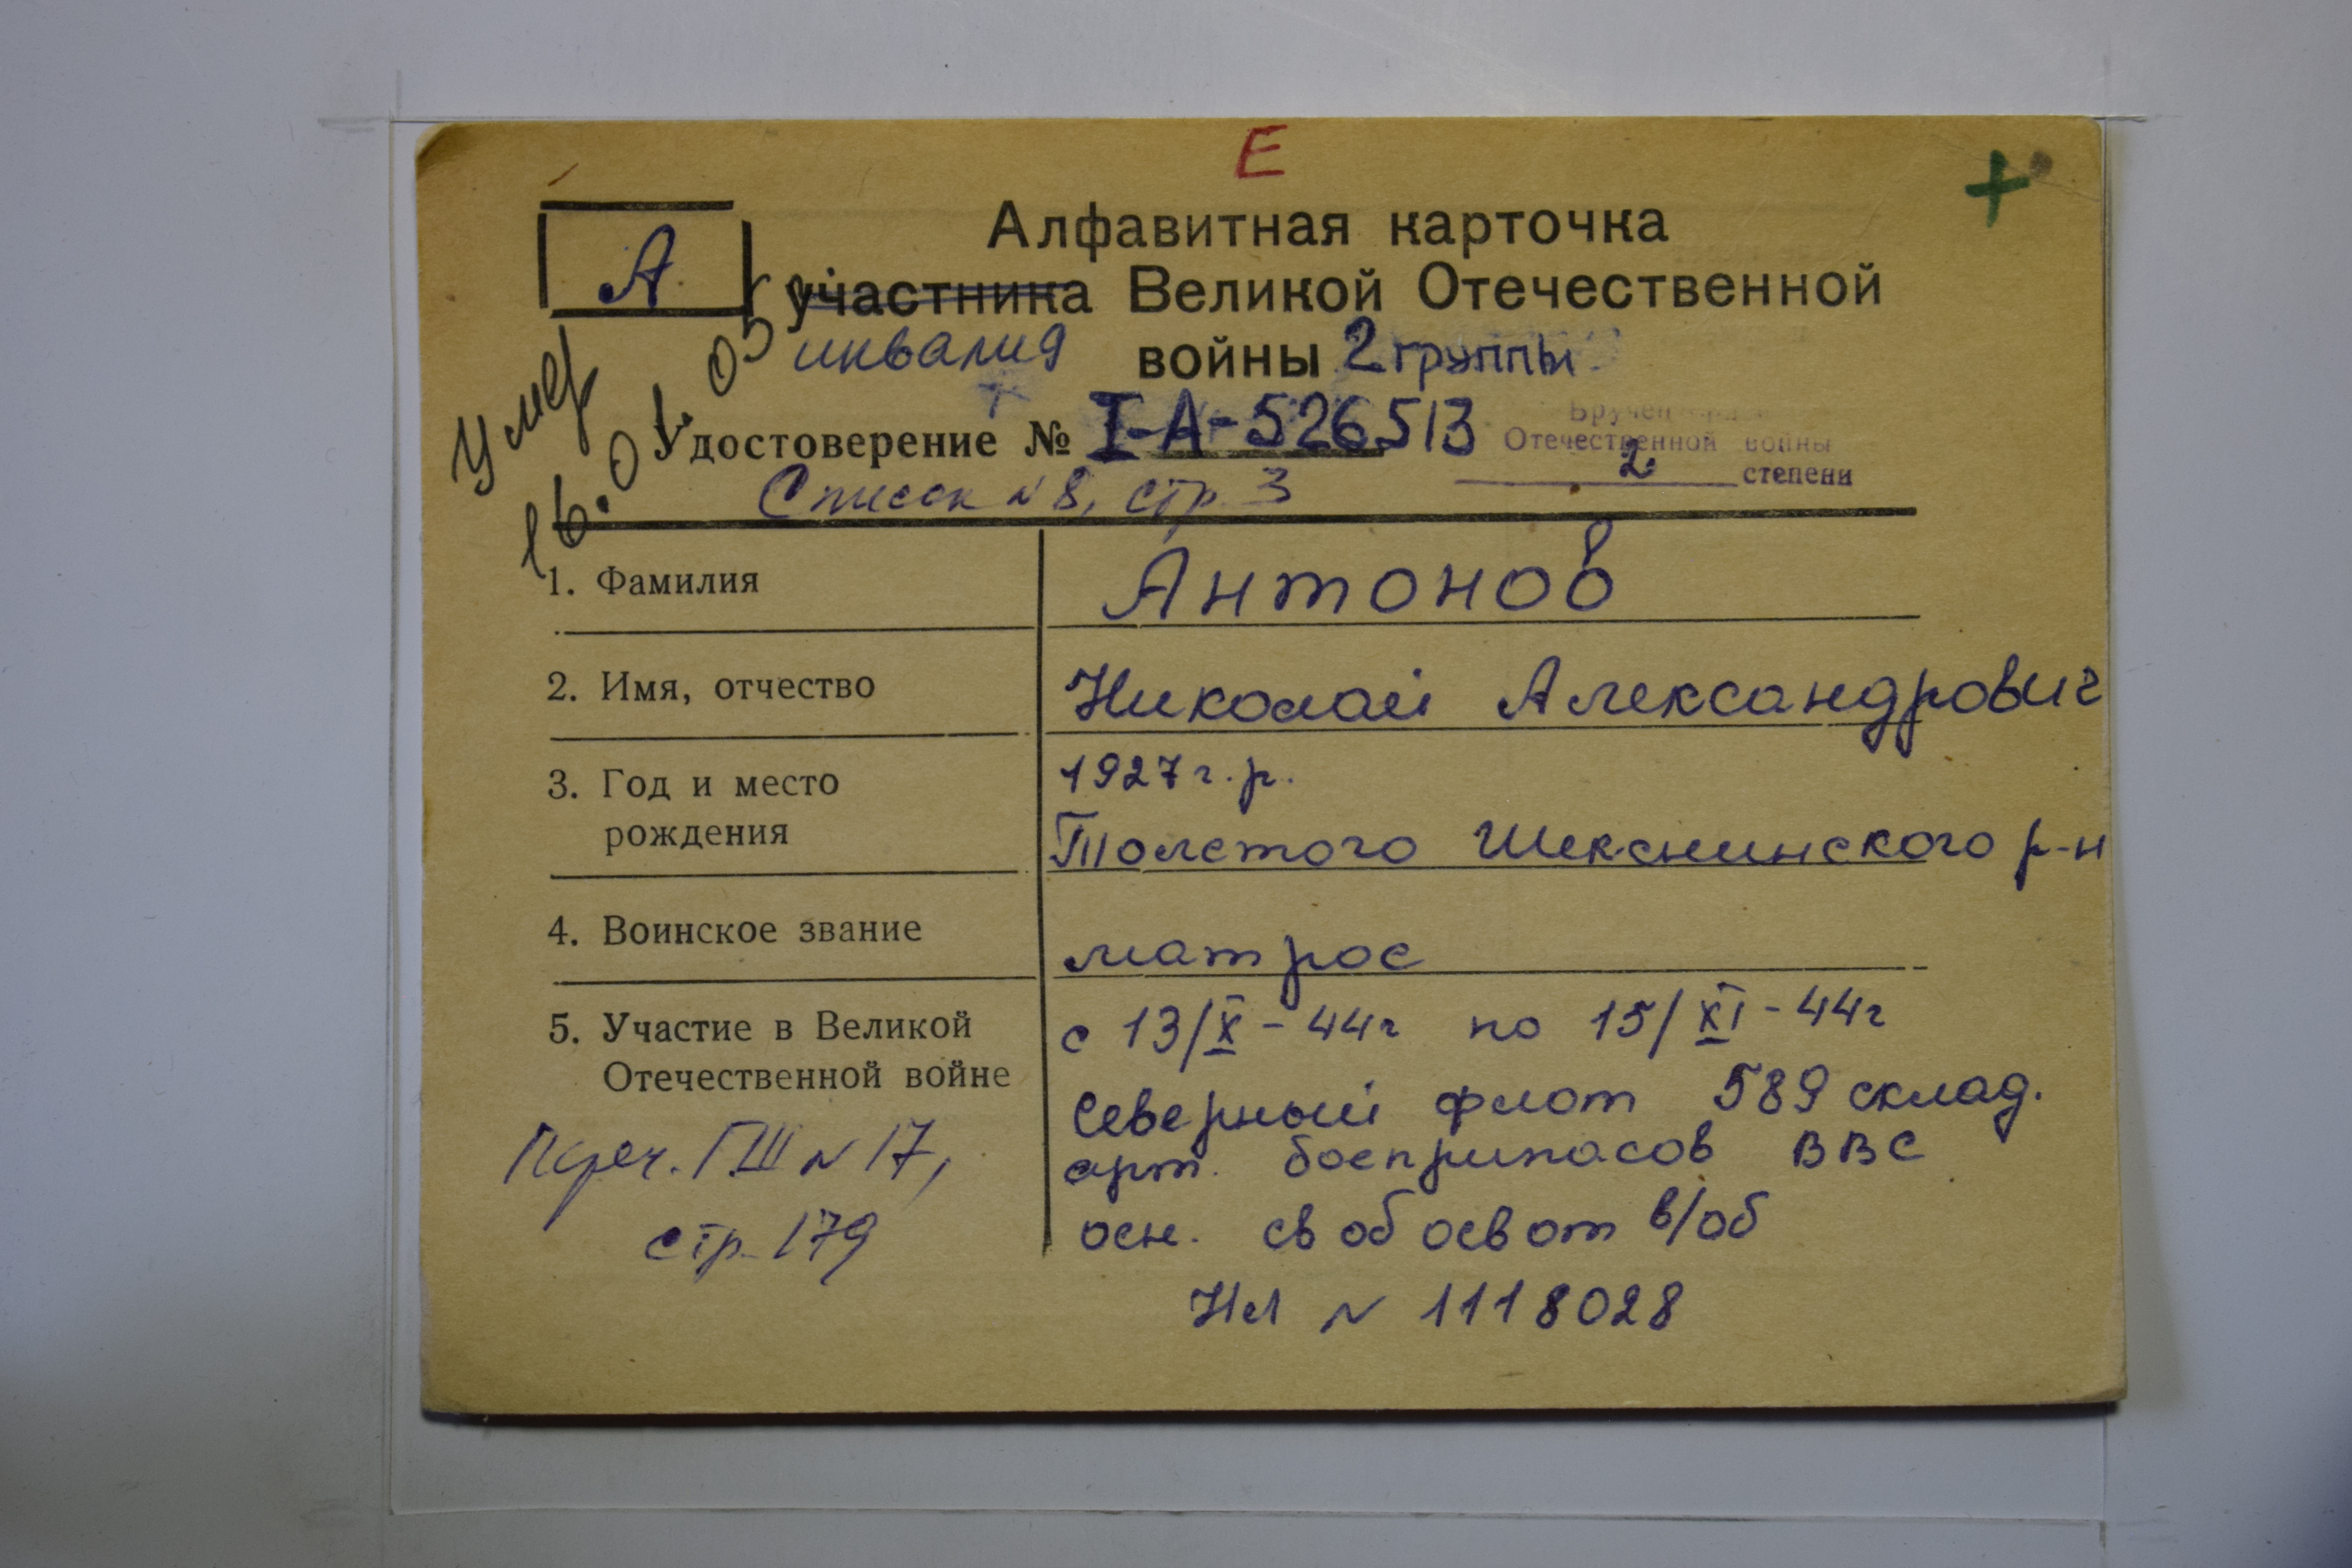 Е
+
А
Алфавитная карточка
участника Великой Отечественной
инвалид войны 2 группы
Умер
16.01.05 г
Удостоверение № I-А-526513
Вручен
Отечественной войны
2 степени
Список N 8, стр. 3
1. Фамилия Антонов
2. Имя, отчество Николай Александрович
3. Год и место 1927 г.р.
рождения Толстого Шекснинского р-н
4. Воинское звание матрос
5. Участие в Великой с 13/X - 44г по 15/XI - 44г
Отечественной войне Северный флот 589 склад.
арт. боеприпасов ВВС
Переч. ГШ N 17,
стр. 179
осн. св об осв от в/об
НЛ N 1118028